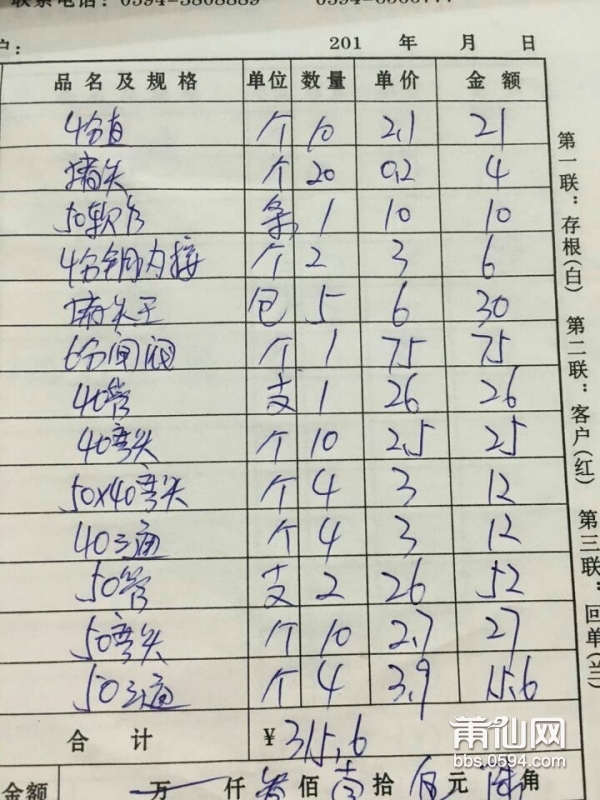 联系电话：0594-5868889
户： 201 年 月 日
品名及规格 单位 数量 单价 金额
4分直 个 10 2.1 21
堵头 个 20 0.2 4
50软管 条 1 10 10
4分铜内接 个 2 3 6
堵头王 包 5 6 30
6分闸阀 个 1 75 75
40管 支 1 26 26
40弯头 个 10 2.5 25
50x40弯头 个 4 3 12
40三通 个 4 3 12
50管 支 2 26 52
50弯头 个 10 2.7 27
50三通 个 4 3.9 15.6
合计 ¥315.6
金额 万 仟 叁佰 壹拾 伍元 陆角
第一联：存根(白) 第二联：客户(红) 第三联：回单(兰)
莆仙网
bbs.0594.com